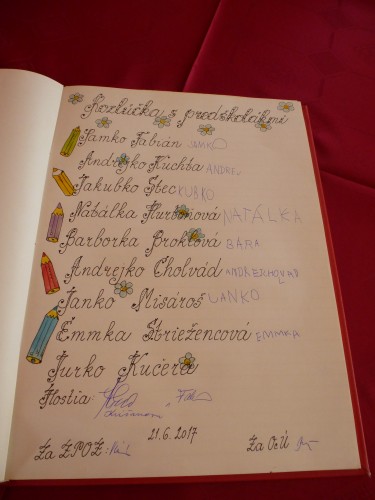 Rozlúčka s predškolákmi
Samko Fabián SAMKO
Andrejko Kuchta ANDREJ
Jakubko Stec KUBKO
Natálka Hurtoňová NATÁLKA
Barborka Broklová BÁRA
Andrejko Cholvád ANDREJCHOLVAD
Janko Misároš JANKO
Emmka Striežencová EMMKA
Jurko Kučera
Hostia:
21.6.2017
Za ZPOZ:
Za OcÚ